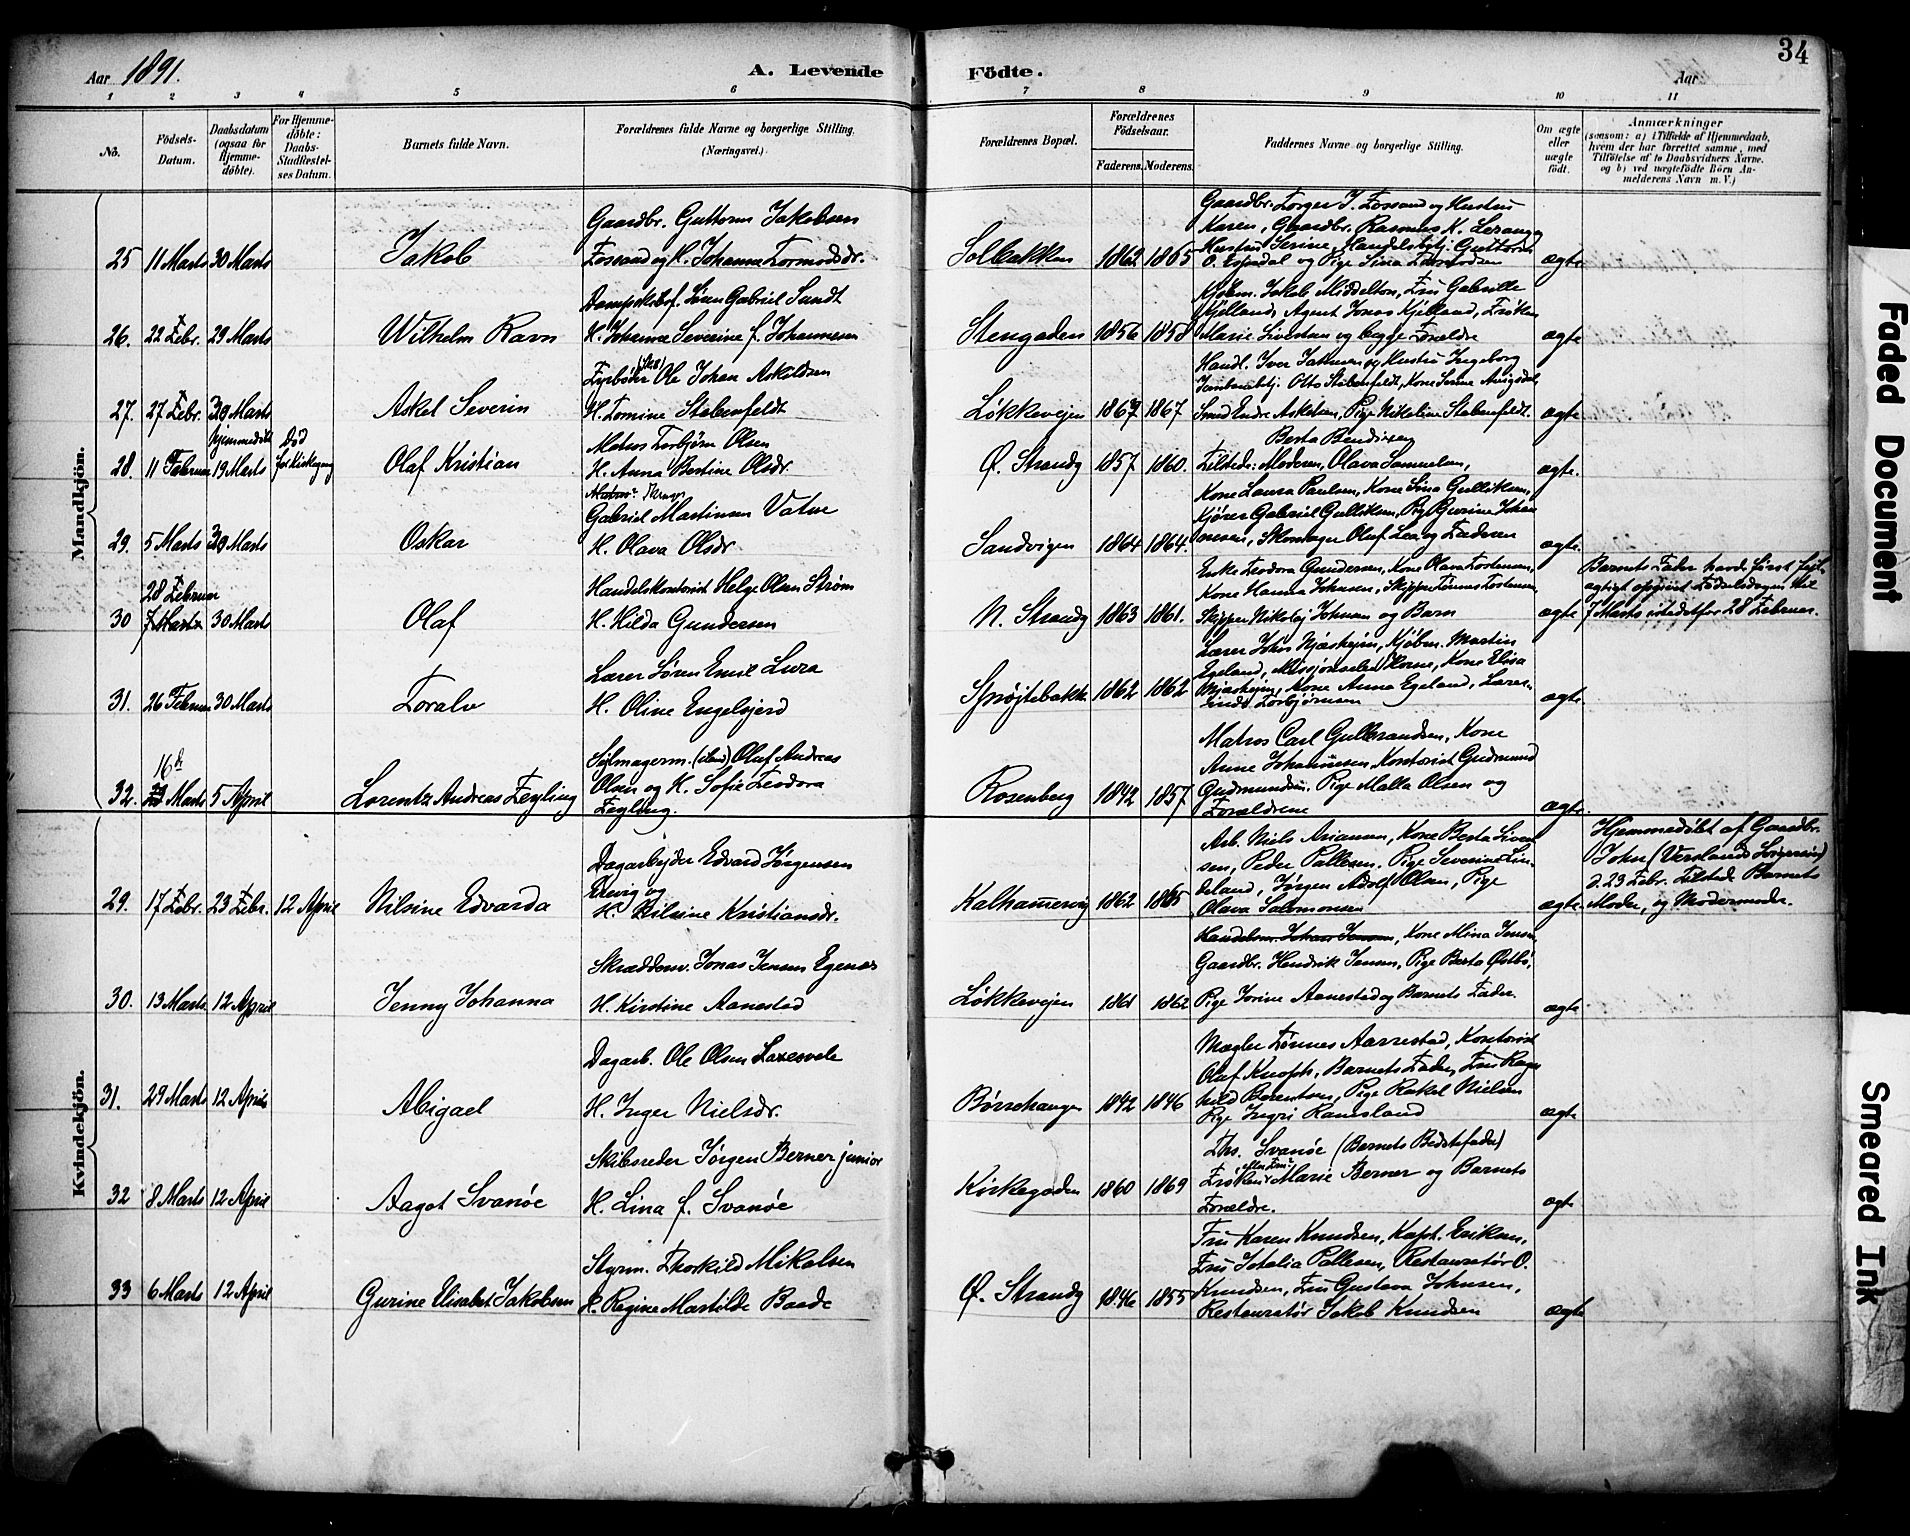 34
Aar 1891.
A. Levende Födte.
Aar
1 2 3 4 5 6 7 8 9 10 11
No.
Födsels-Datum.
Daabsdatum (ogsaa for Hjemme-døbte).
For Hjemme-døbte: Daabs-Stadfæstel-ses Datum.
Barnets fulde Navn.
Forældrenes fulde Navne og borgerlige Stilling. (Næringsvei.)
Forældrenes Bopæl.
Forældrenes Födselsaar.
Faderens. Moderens.
Faddernes Navne og borgerlige Stilling.
Om ægte eller uægte født.
Anmærkninger
(saasom: a) i Tilfælde af Hjemmedaab, hvem der har forrettet samme, med Tilföielse af to Daabsvidners Navne. og b) ved uægtefödte Börn An-melderens Navn m.V.)
Mandkjön.
25 11 Marts 30 Marts
Jakob
Gaardbr. Guttorm Jakobsen
Fossand og H. Johanne Tormodsdr.
Solbakken 1862 1865
Gaardbr. Torger T. Fossand og Hustru
Karen, Gaardbr. Rasmus K. Lerang og
Hustru Serine, Handelsbetj. Guttorm
O. Espedal og Pige Sina
ægte
26. 22 Febr. 29 Marts
Wilhelm Ravn
Dampskibsf. Sören Gabriel Sundt
H. Johanne Severine f. Johannesen
Stengaden 1856 1858
Kjöbm. Jakob Middelton, Fru Gabrille
Kjelland, Agent Jonas Kjelland, Fröken
Marie Sivertsen og begge Forældre
ægte
27. 27 Febr. 30 Marts
Askel Severin
Fyrböder Ole Johan Askildsen
H. Tomine Stabenfeldt
Løkkevejen 1867 1867
Handl. Iver og Hustru Ingeborg
Otto Stabenfeldt, Kone Serine
Smed Endre Askelsen, Pige Nikoline Stabenfeldt.
ægte
28. 11 Februar hjemmedöbt 19 Marts Død før Kirkegang
Olaf Kristian
Matros Torbjörn Olsen
H. Anna Bertine Olsdr.
Ø. Strandg 1857 1860.
Berta Bendixsen
Tilstede: Moderen, Olava Samuelsen,
ægte.
29. 5 Marts 30 Marts
Oskar
Gabriel Martinsen Vatne
H. Olava Olsdr.
Sandvigen 1864 1864.
Kone Laura Paulsen, Kone Sina Gulliksen,
Kjörer Gabriel Gulliksen, Pige Gurine Johan
nesen, Skomager Oluf Lea og Faderen
ægte.
30 28 Februar 7 Marts 30 Marts
Olaf
Handelskontorist Helge Olsen Ström
H. Hilda Gundersen
N. Strandg 1863 1861.
Enke Teodora Gundersen, Kone Olava Torstensen,
Kone Hanna Johnsen, Skipper Tönnes Torstensen,
Skipper Nikolaj Johnsen og Barn
ægte
Barnets Fader havde først fejl-
agtigt opgivet Fødselsdagen til
7 Marts istedetfor 28 Februar.
31. 26 Februar 30 Marts
Toralv
Lærer Sören Emil Lura
H. Oline Engelsgjerd
Sprøjtebakke 1862 1862
Lærer Johs Njaskejem, Kjöbm. Martin
Egeland, Missjonselev Horne, Kone Elisa
Njaskejem, Kone Anna Egeland, Lærer-
inde Torbjörnsen
ægte.
32. 16de Marts 5 April
Lorentz Andreas Feyling
Sejlmagerm. Oluf Andreas
Olsen og H. Sofie Teodora
Feyling.
Rosenberg 1842 1857
Matros Carl Gulbrandsen, Kone
Anne Johannesen Kontorist Gudmund
Gudmundsen, Pige Malla Olsen og
Forældrene
ægte.
Kvindekjön.
29. 17 Febr. 23 Febr. 12 April
Nilsine Edvarda
Dagarbejder Edvard Jørgensen
Drevig og
H. Nilsine Kristiansdr.
Kalhammervg 1862 1865
Arb. Niels Ariansen, Kone Berta Siver
sen, Peder Pallesen, Pige Severine Lin
deland, Jørgen Adolf Olsen, Pige
Olava Salomonsen
ægte.
Hjemmedöbt af Gaardbr.
John
d. 23 Febr. Tilsted. Barnets
Moder, og Modermoder.
30. 13 Marts. 12 April
Jenny Johanna
Skræddersv. Jonas Jensen Egenæs
H. Kirstine Aanestad
Løkkevejen 1861 1862
Handelsm. Johan Jensen, Kone Mina Jensen,
Gaardbr. Hendrik Jensen, Pige Berta Østbö,
Pige Jorine Aanestad og Barnets Fader.
ægte
31. 29 Marts 12 April
Abigael
Dagarb. Ole Olsen Laxesvele
H. Inger Nielsdr.
Børsehaugen 1842 1846
Mægler Tönnes Aarrestad, Kontorist
Olaf Knoph, Barnets Fader, Fru Rag
nild Berentsen, Pige Rakel Nielsen
Pige Ingri Ramsland
ægte
32 8 Marts 12 April
Aagot Svanöe
Skibsreder Jørgen Berner junior
H. Lina f. Svanöe
Kirkegaden 1860 1869
Ths. Svanöe (Barnets Bedstefader)
Fröken Marie Berner og Barnets
Forældre.
ægte
33 6 Marts 12 April
Gurine Elisabet Jakobsen
Styrm. Thorkild Mikalsen
H. Regine Martilde Baade
Ø. Strandg 1846 1855
Fru Karen Knudsen, Kapt. Eriksen,
Fru Jotalia Pallesen, Restauratør O.
Knudsen, Fru Gustava Johnsen,
Restauratør Jakob Knudsen
ægte
Faded Document
Smeared Ink